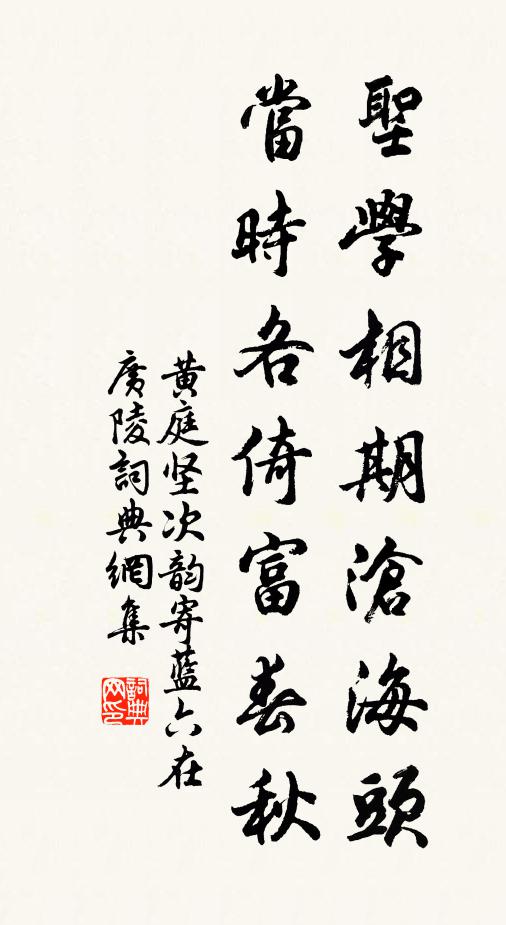 聖學相期滄海頭
當時各倚富春秋
黄庭坚次韵寄藍六在
廣陵詞典網集
詞典
网印